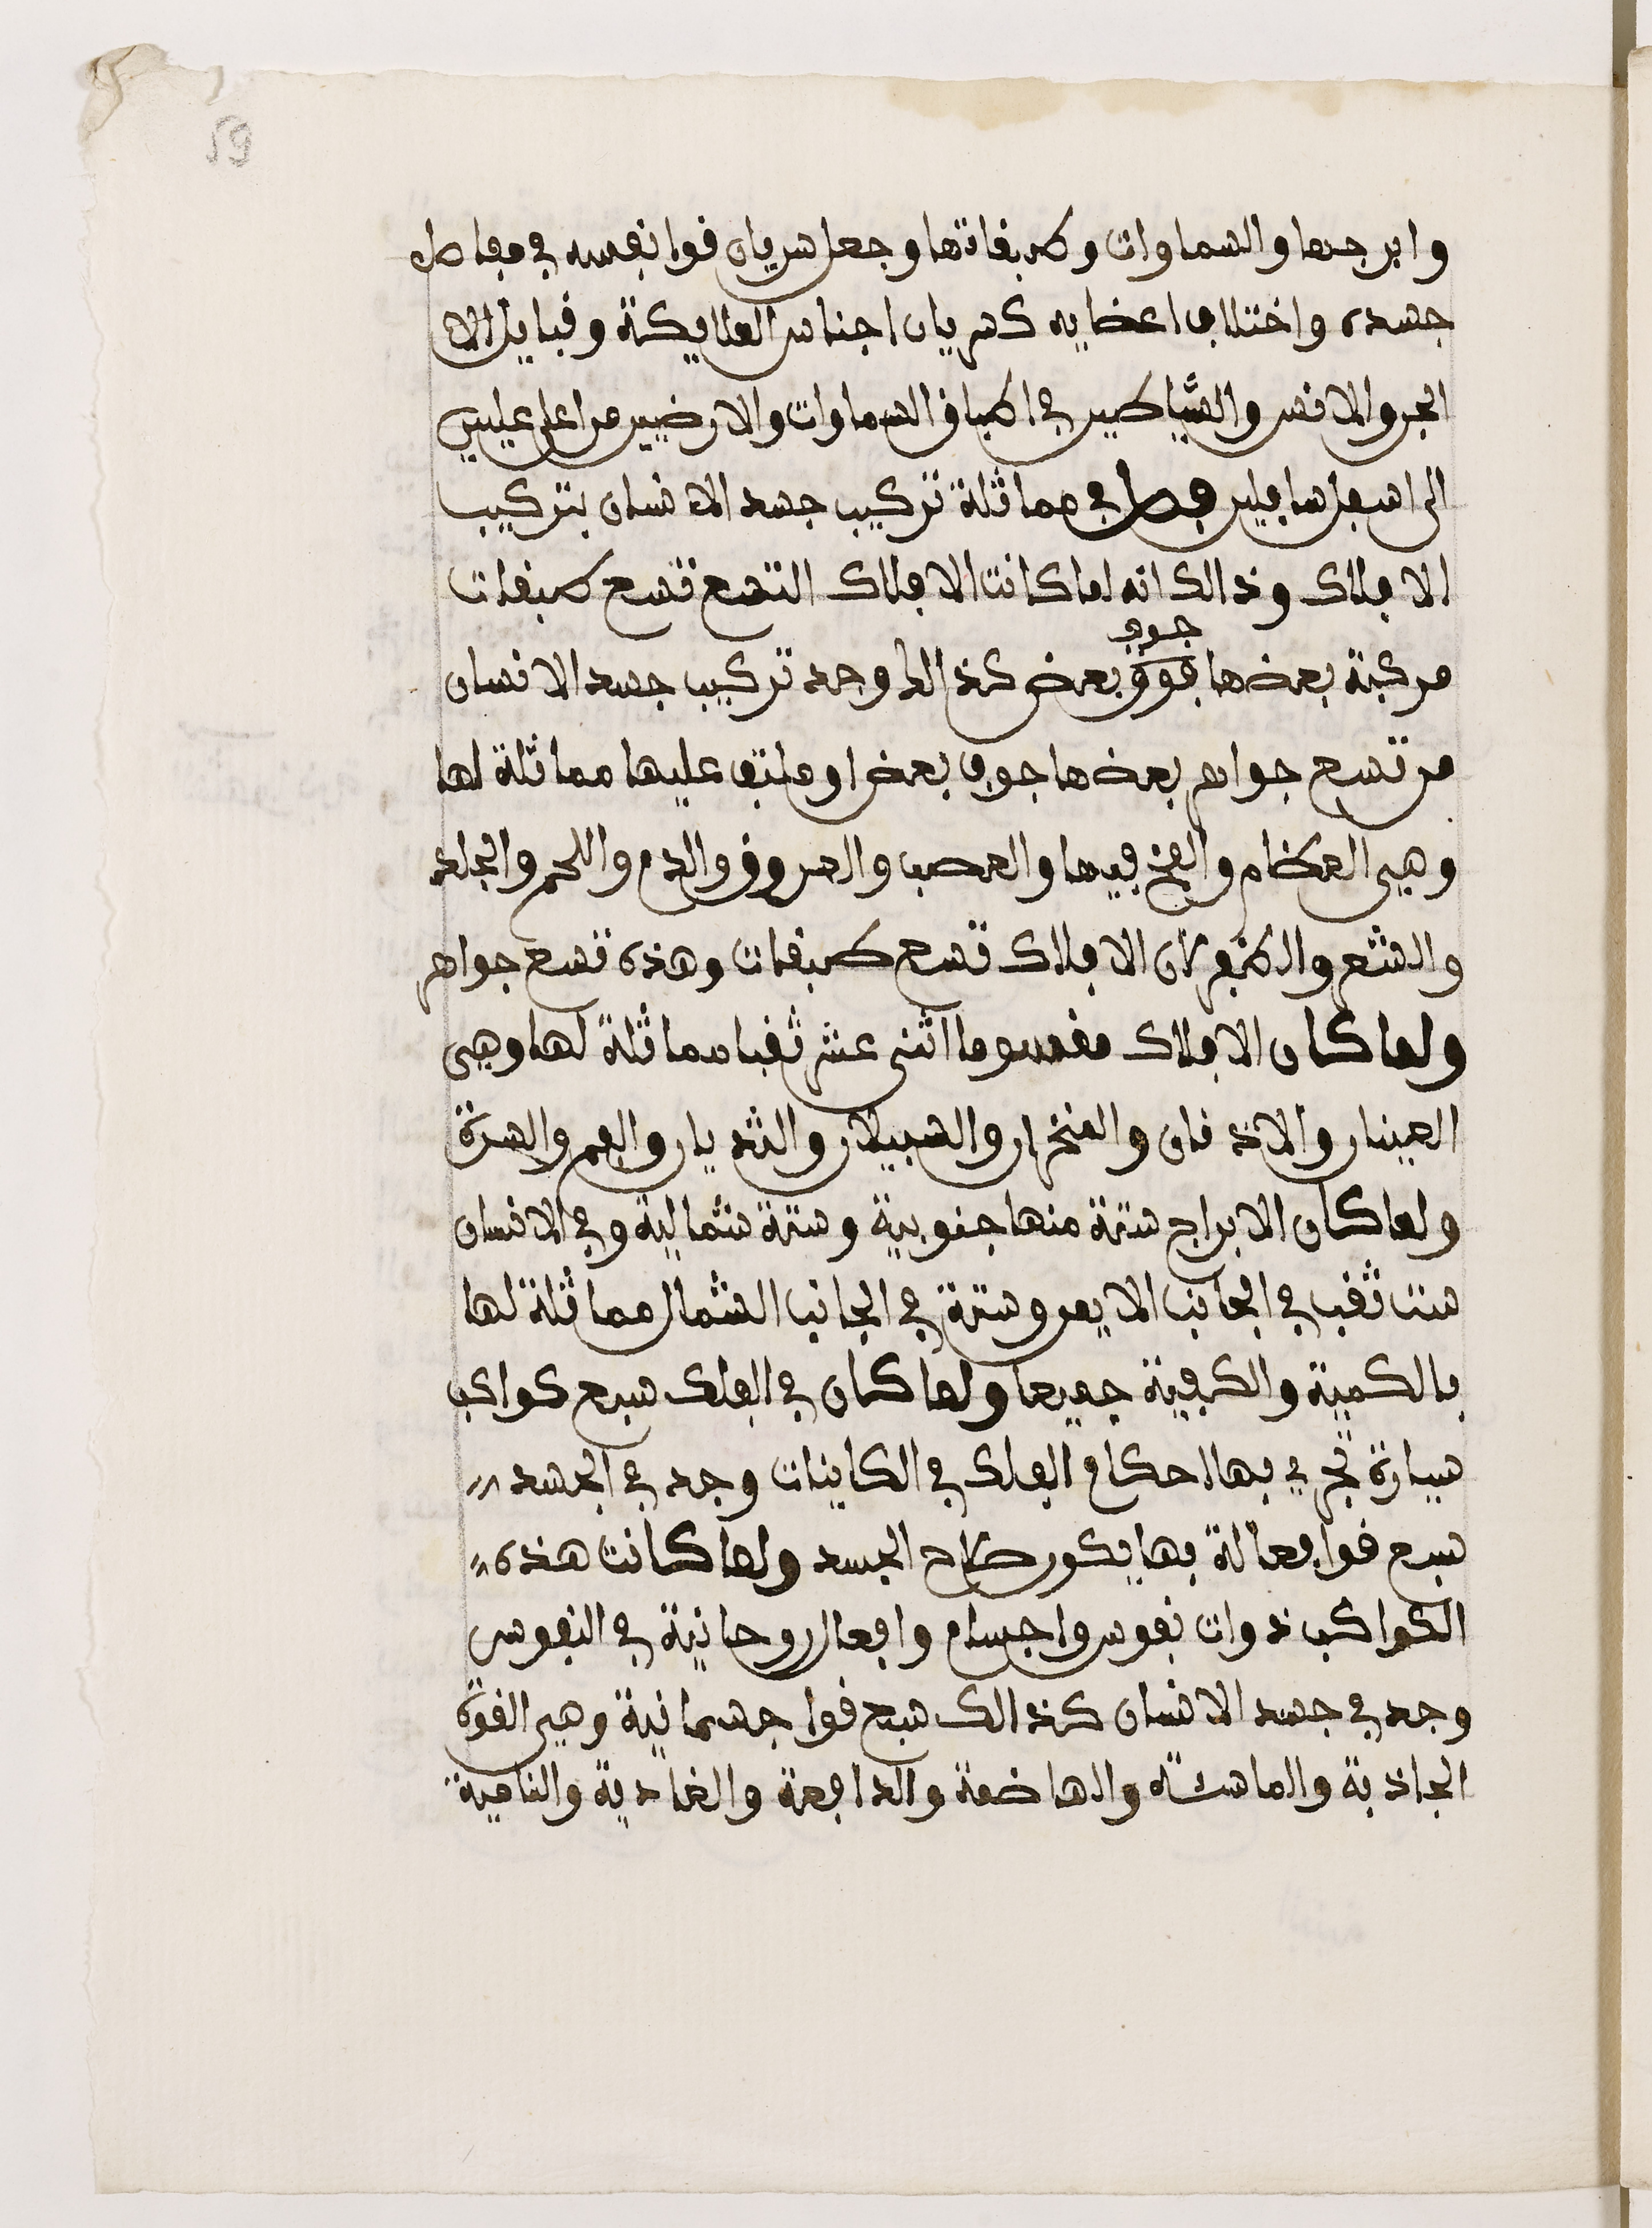 59
وابرجها والسماوات وطبقاتها وجعل سريان قوا نفسه في مفاصل
جسده واختلاف اعضايه كسريان اجناس الملايكة وقبايل الا
الجن والانس والشياطين في اطباق السماوات والارضين من اعلى عليين
الى اسفل سافلين فصل في مماثلة تركيب جسد الانسان بتركيب
الافلاك وذالك انه لما كانت الافلاك التسع تسع طبقات
جوف
مركبة بعضها فوق بعض كذالك وجد تركيب جسد الانسان
من تسع جواهر بعضها جوف بعض او ملتف عليها مماثلة لها
وهي العظام والمخ فيها والعصب والعروق والدم واللحم والجلد
والشعر والظفر لان الافلاك تسع طبقات وهذه تسع جواهر
ولما كان الافلاك مقسوما اثنى عشر ثقبا مماثلة لها وهي
العينان والاذنان والمنخران والسبيلان والثديان والفم والسرة
ولما كان الابراج ستة منها جنوبية وستة شمالية وفي الانسان
ست ثقب في الجانب الايمن وستة في الجانب الشمال مماثلة لها
بالكمية والكيفية جميعا ولما كان في الفلك سبع كواكب
سيارة تجري بها احكام الفلك في الكاينات وجد في الجسد
سبع قوا فعالة بها يكون صلاح الجسد ولما كانت هذه
الكواكب ذوات نفوس واجسام وافعال روحانية في النفوس
وجد في جسد الانسان كذالك سبع قوا جسمانية وهي القوة
الجاذبة والماسكة والهاضمة والدافعة والغادية والنامية